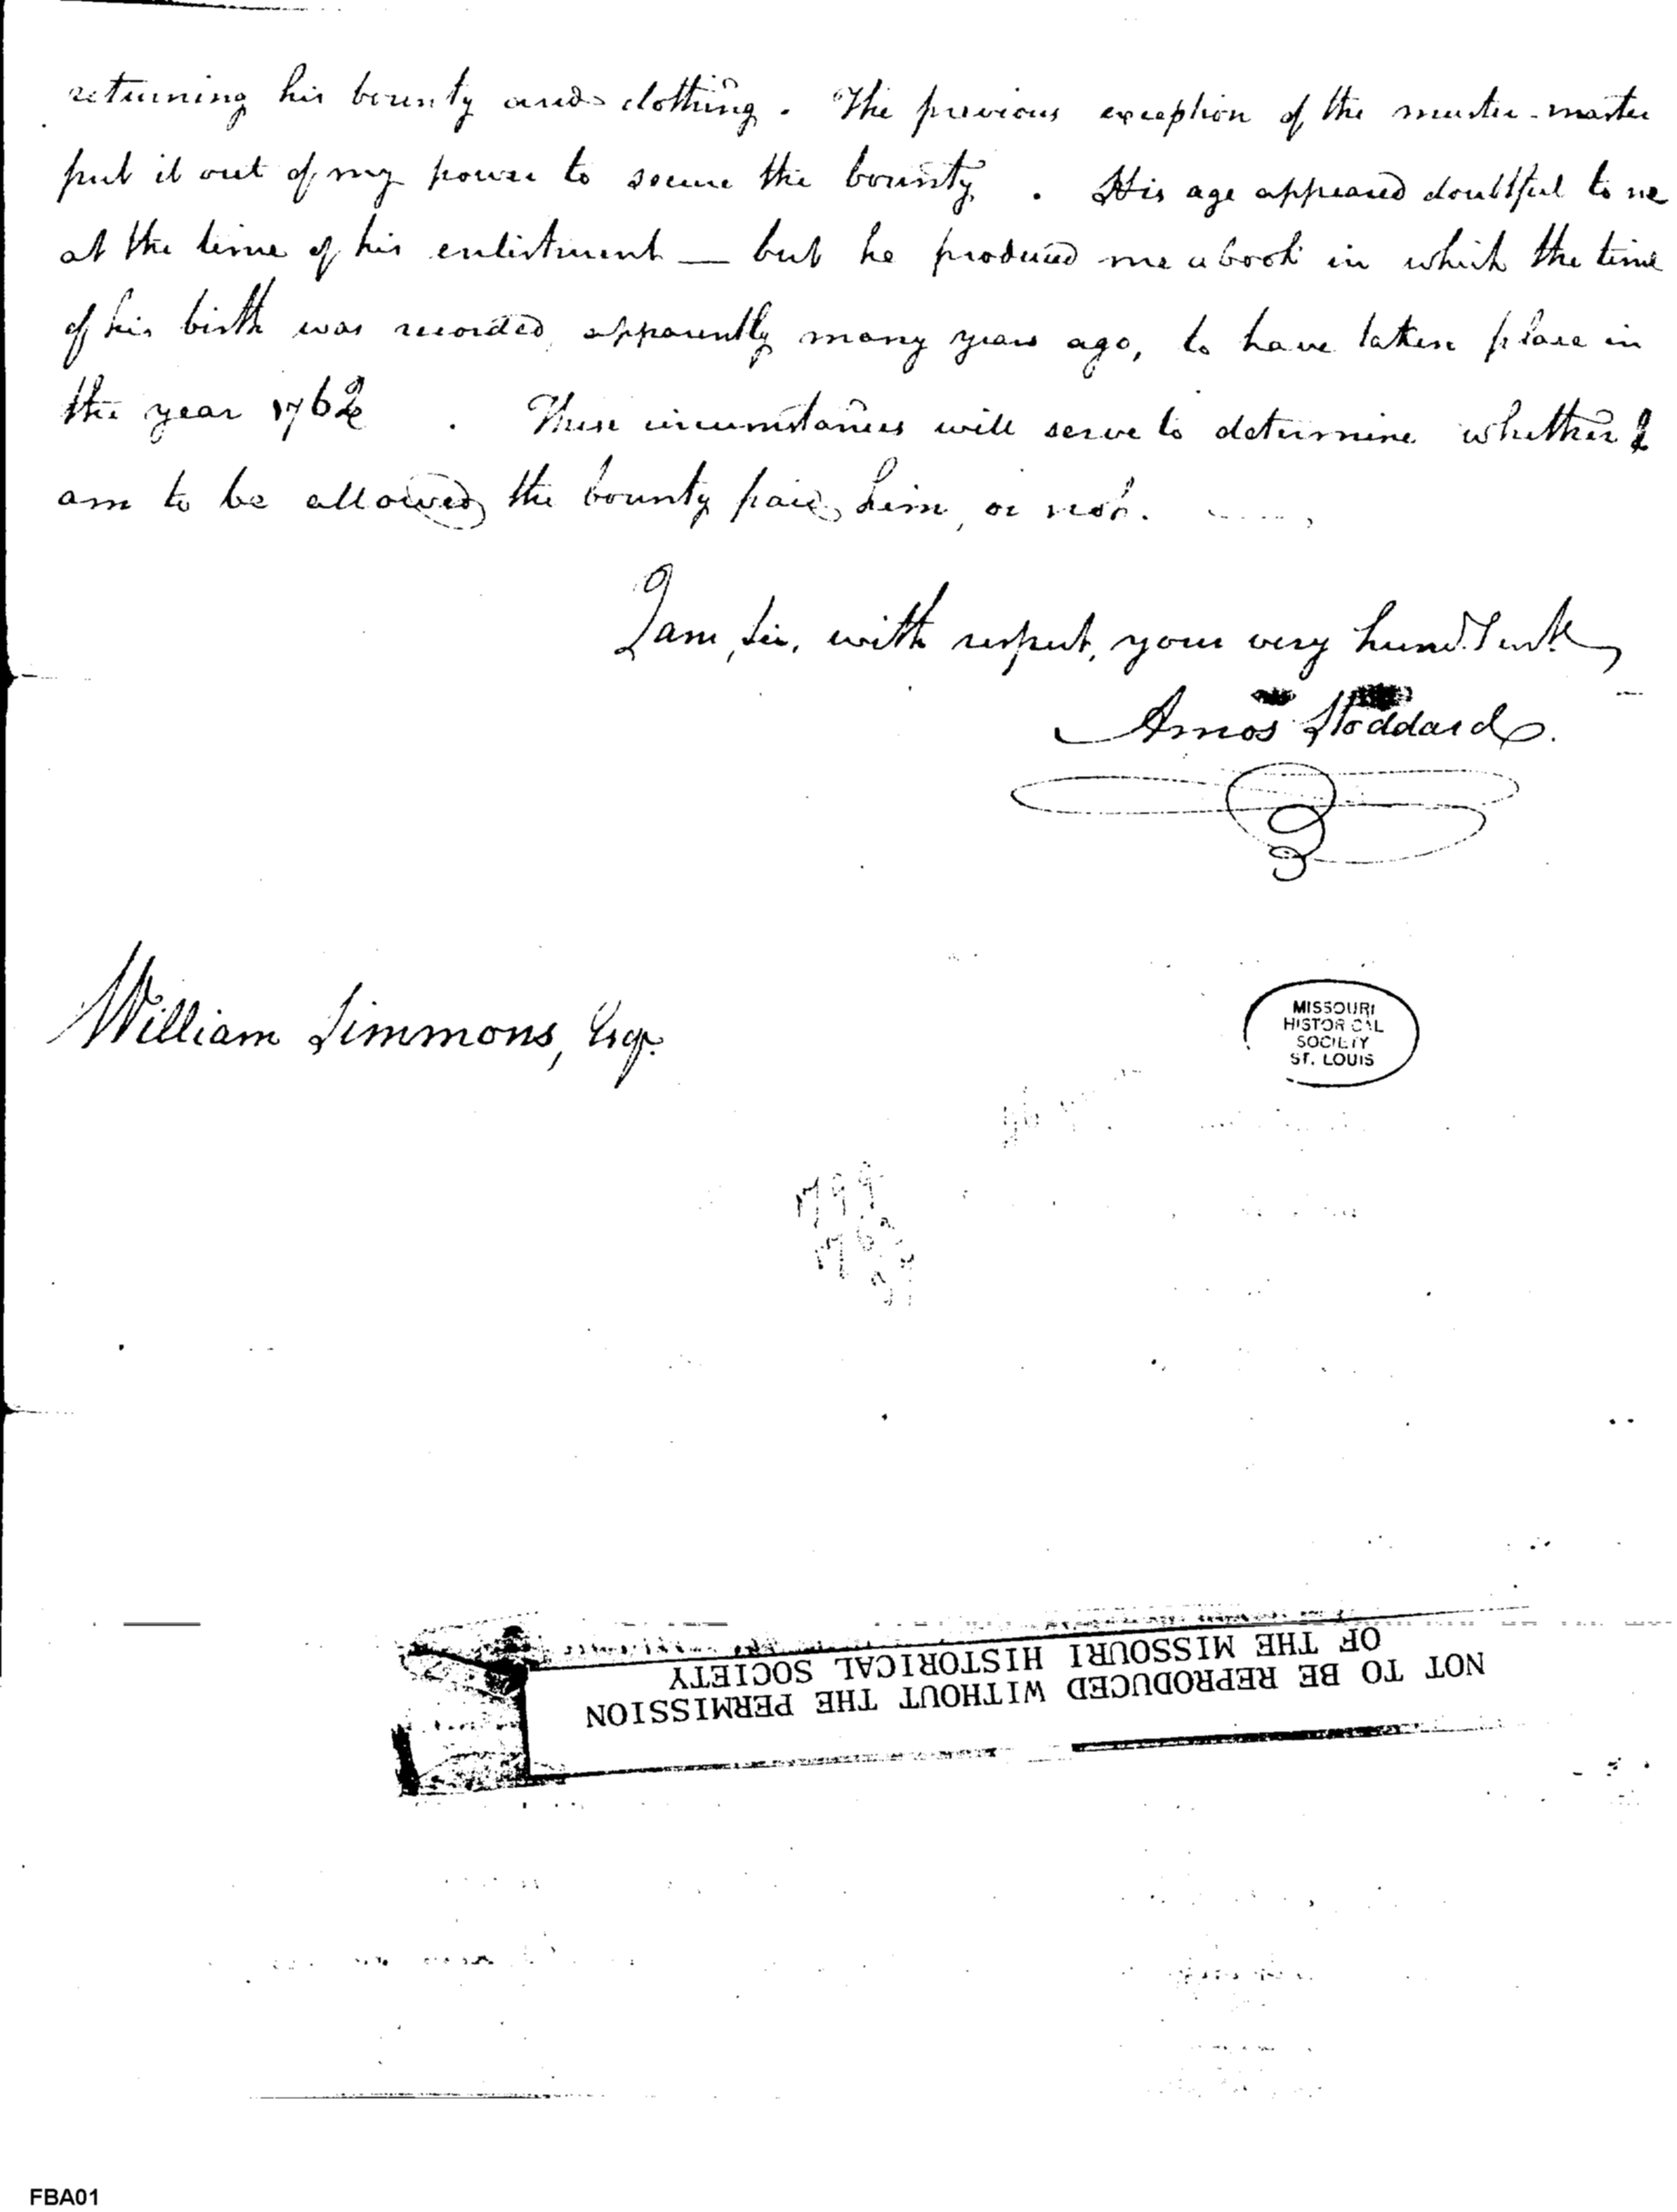 returning his bounty and clothing. The previous exception of the muster-master
put it out of my power to secure the bounty. His age appeared doubtful to me
at the time of his enlistment — but he produced me a book in which the time
of his birth was recorded, apparently many years ago, to have taken place in
the year 1762. These circumstances will serve to determine whether I
am to be allowed the bounty paid him, or not.
I am, Sir, with respect, your very hum. Servt
Amos Stoddard.
William Simmons, Esqr.
MISSOURI
HISTORICAL
SOCIETY
ST. LOUIS
1799
176
NOT TO BE REPRODUCED WITHOUT THE PERMISSION
OF THE MISSOURI HISTORICAL SOCIETY
FBA01